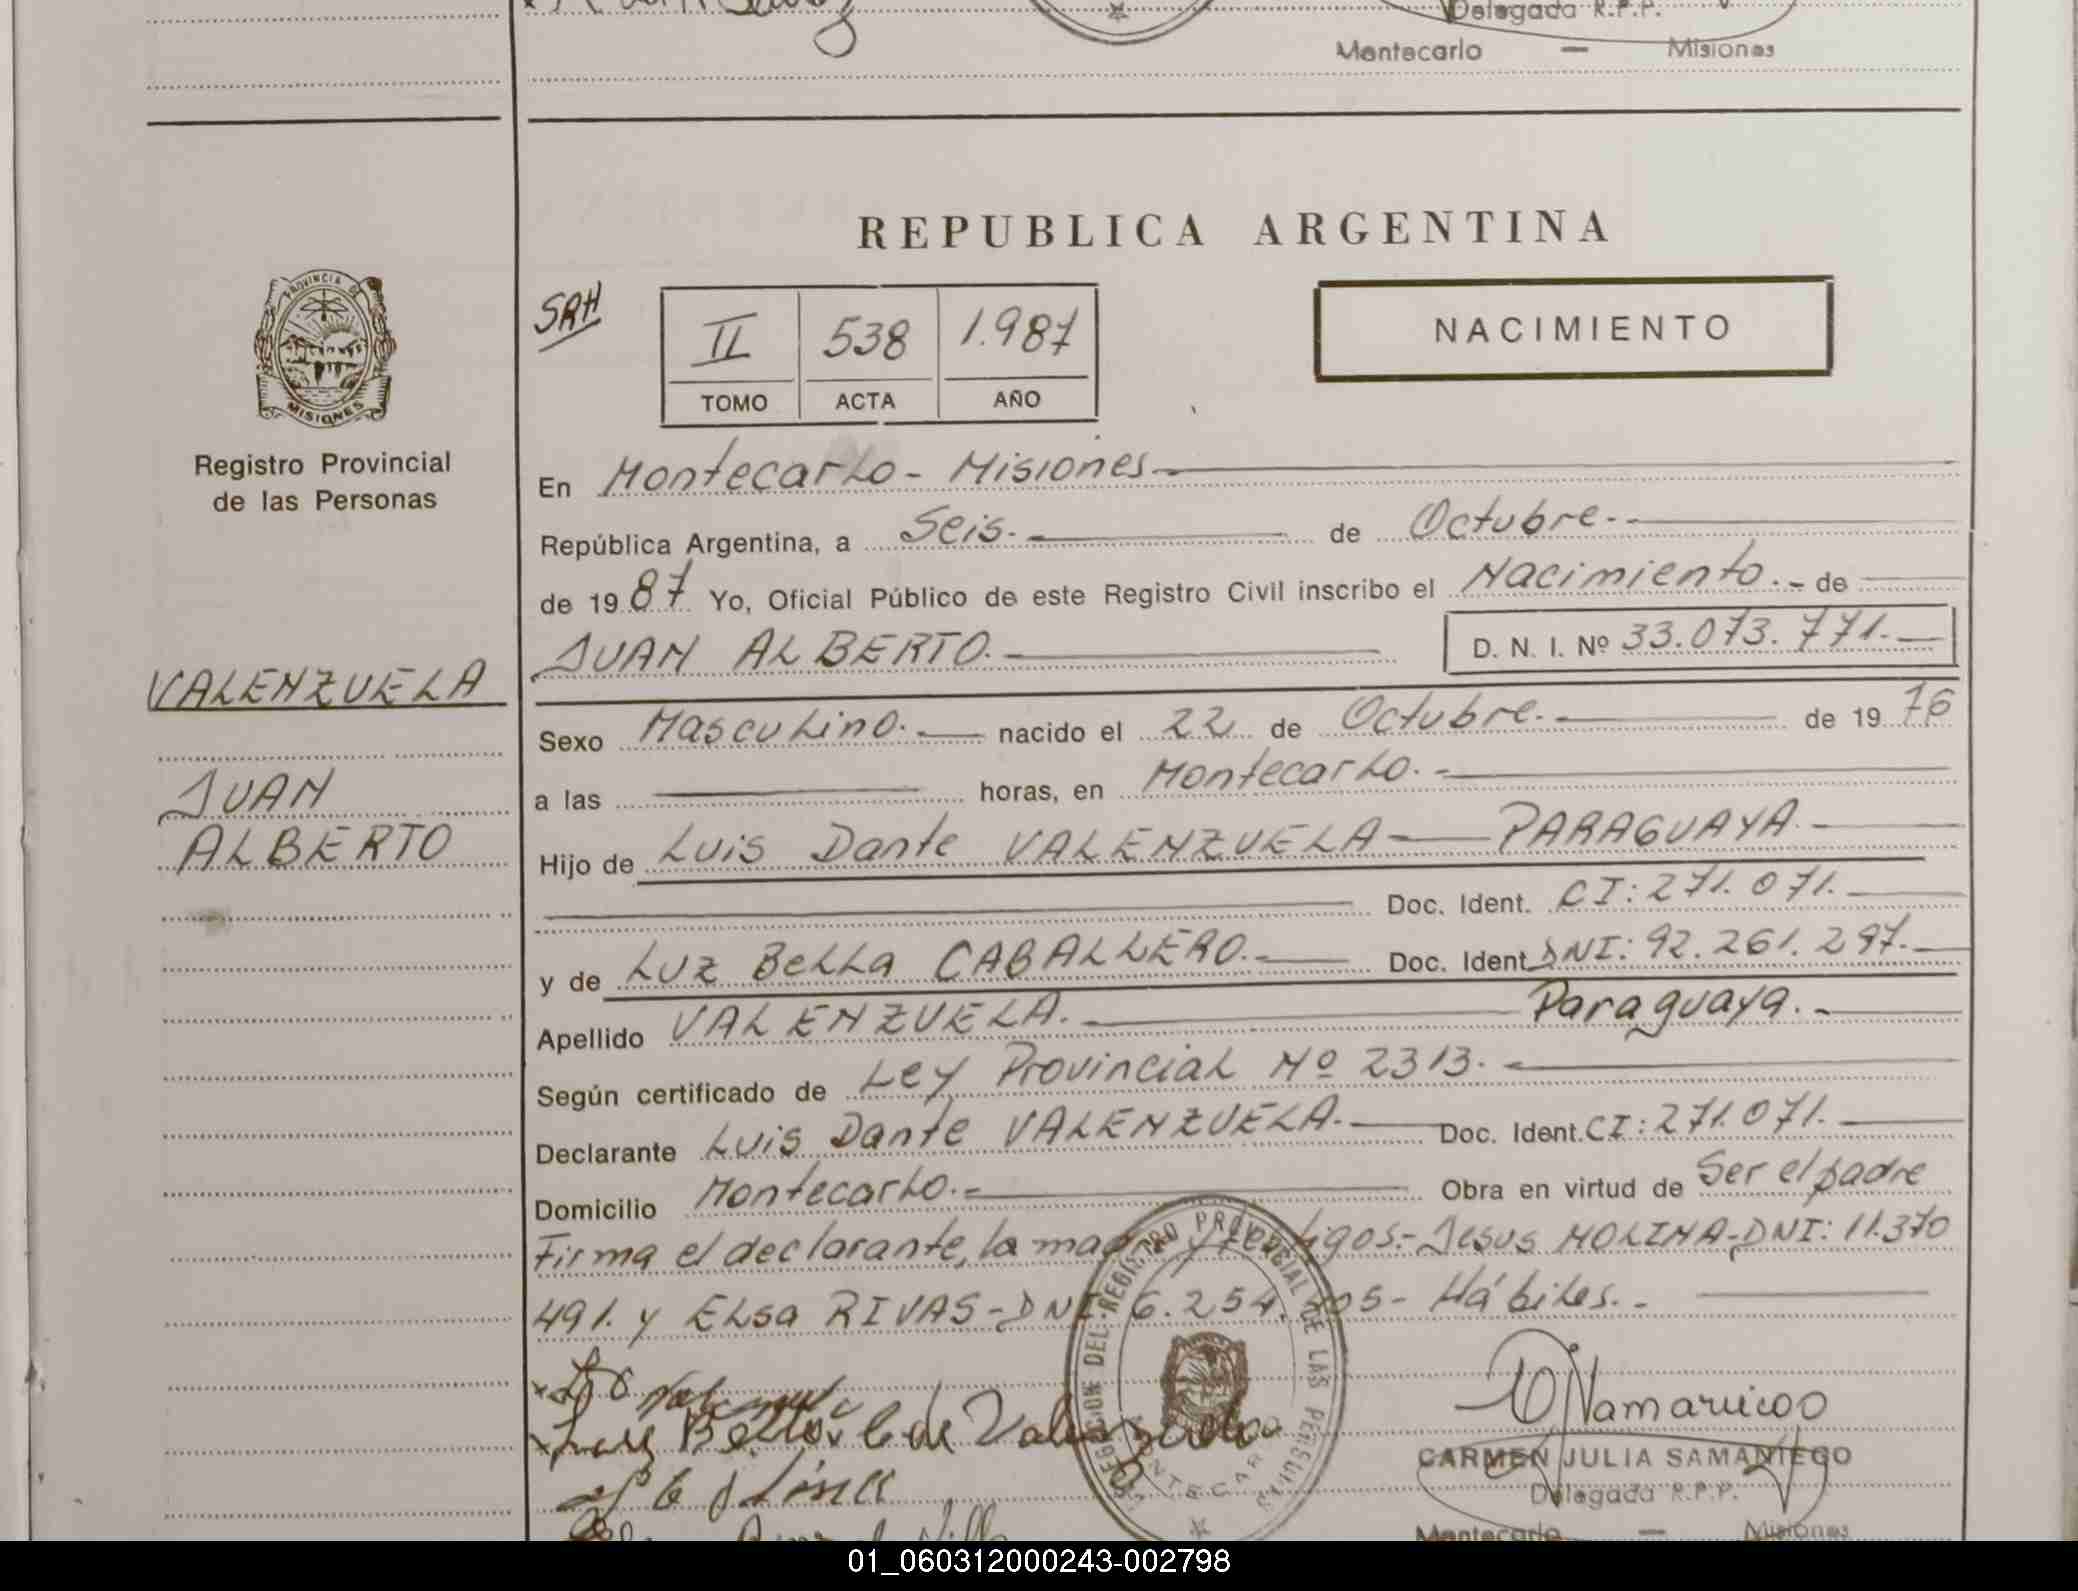 Delegada R.P.P.
Montecarlo — Misiones
REPUBLICA ARGENTINA
PROVINCIA DE
MISIONES
Registro Provincial
de las Personas
SRH
II 538 1.987
TOMO ACTA AÑO
NACIMIENTO
En Montecarlo - Misiones
República Argentina, a Seis. de Octubre.
de 1987 Yo, Oficial Público de este Registro Civil inscribo el Nacimiento. - de
JUAN ALBERTO. D. N. I. Nº 33.073.771.
VALENZUELA
JUAN
ALBERTO
Sexo Masculino. nacido el 22 de Octubre. de 1976
a las horas, en Montecarlo. -
Hijo de Luis Dante VALENZUELA PARAGUAYA.
Doc. Ident. CI: 271.071.
y de Luz Bella CABALLERO. Doc. Ident. DNI: 92.261.297.
Apellido VALENZUELA. Paraguaya. -
Según certificado de Ley Provincial Nº 2313.
Declarante Luis Dante VALENZUELA. Doc. Ident. CI: 271.071.
Domicilio Montecarlo. - Obra en virtud de Ser el padre
Firma el declarante, la madre y testigos.- Jesus MOLINA-DNI: 11.370
491. y Elsa RIVAS-DNI: 6.254. - Hábiles. -
DELEGACION DEL REGISTRO PROVINCIAL DE LAS PERSONAS
MONTECARLO
Bella C de Valenzuela
CARMEN JULIA SAMANIEGO
Delegada R.P.P.
Montecarlo — Misiones
01_060312000243-002798